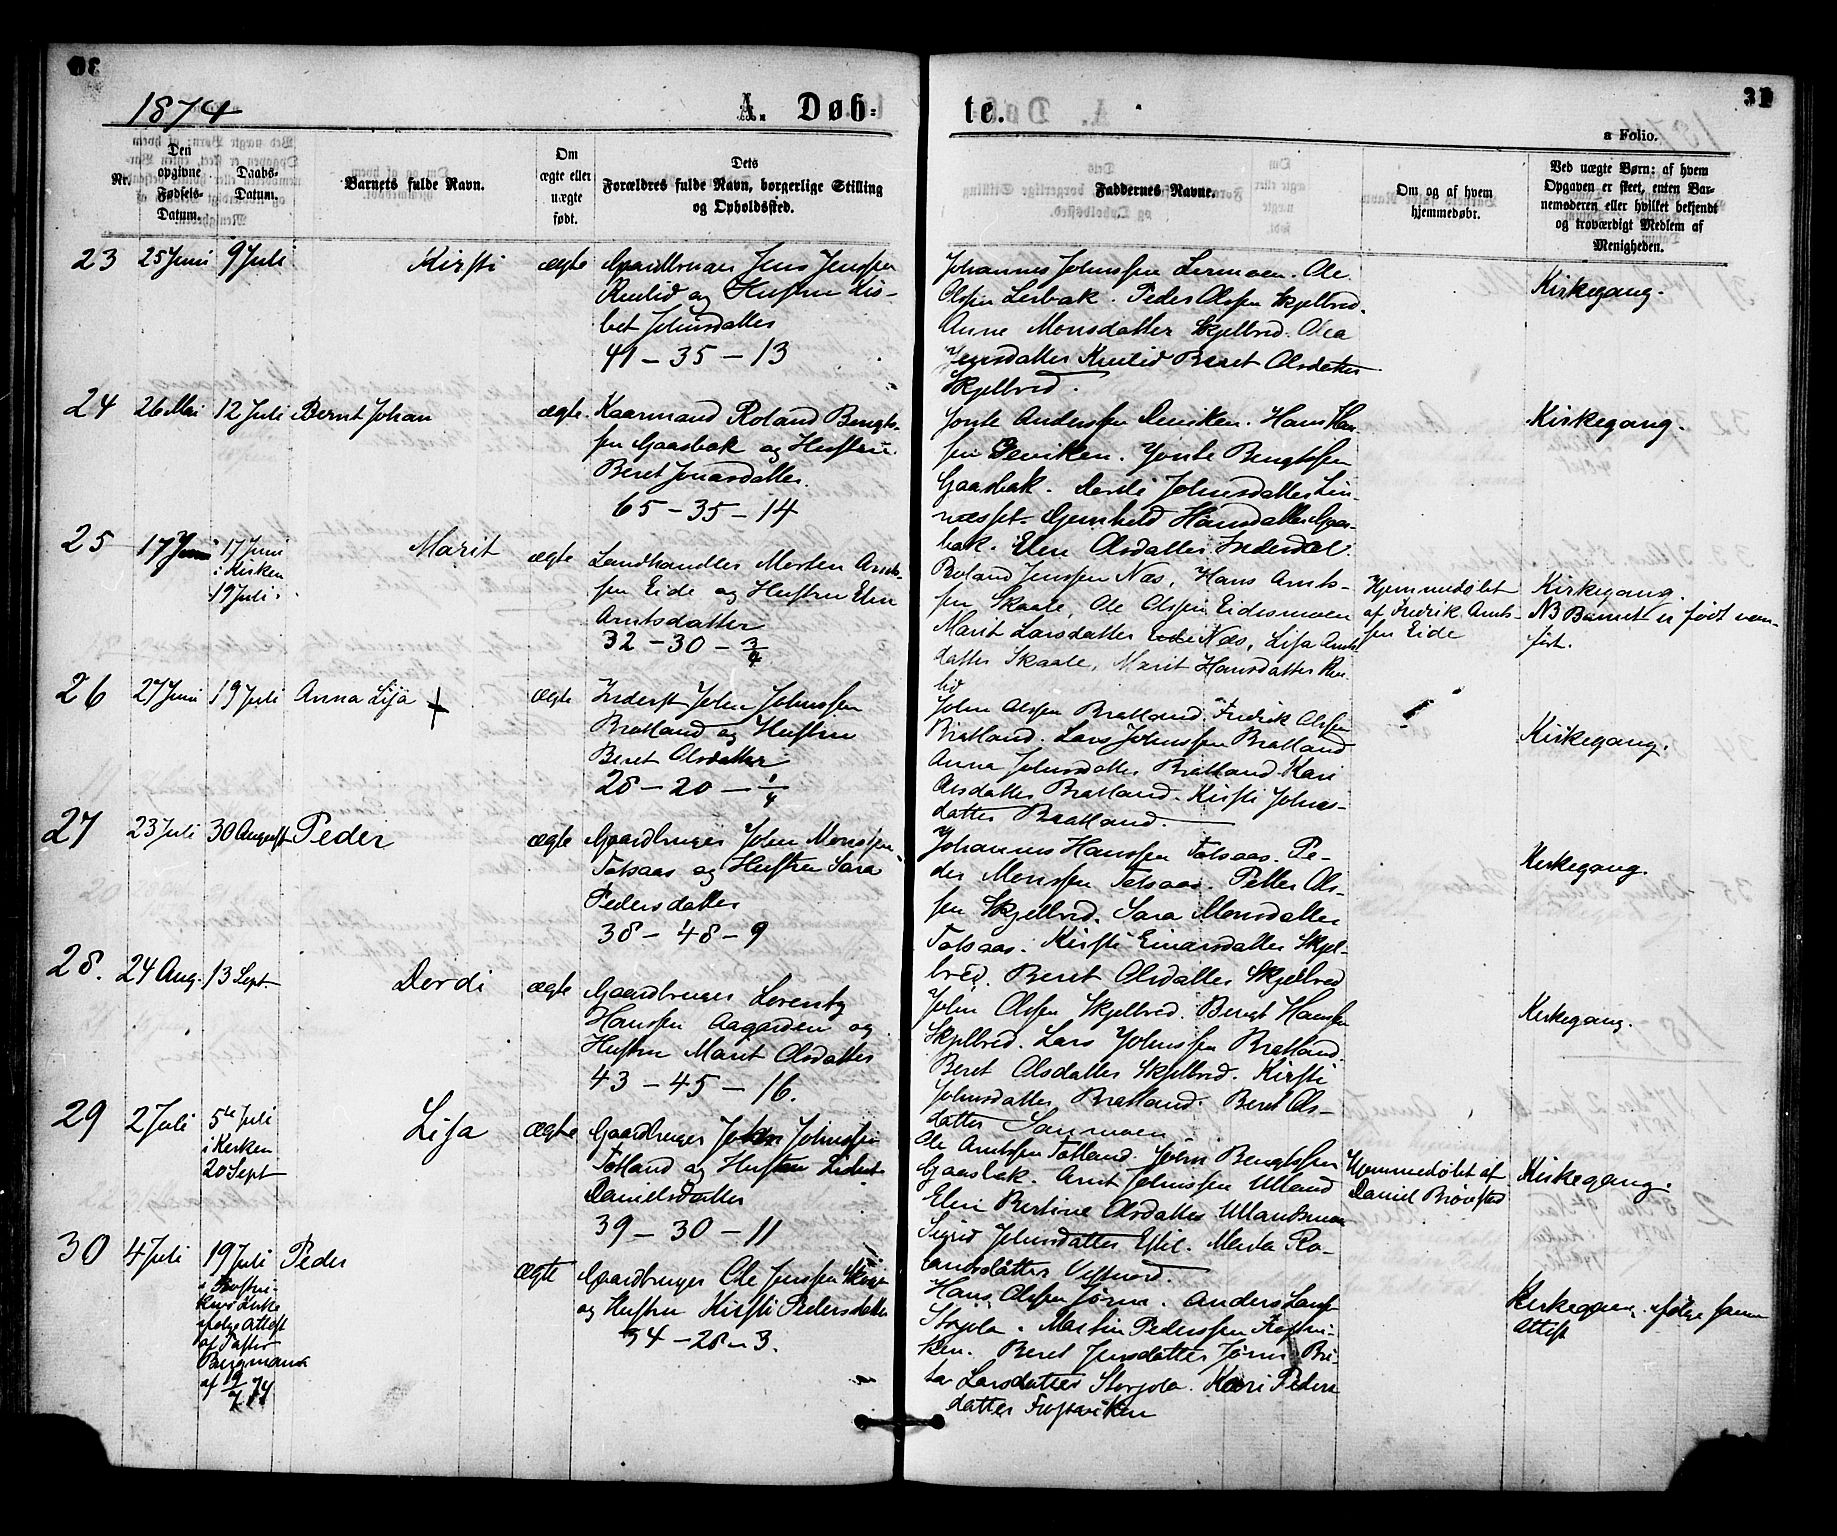 1874
A. Døb-
te.
31
a Folio.
Nr.
Den
opgivne
Fødsels-
Datum.
Daabs-
Datum.
Barnets fulde Navn.
Om
ægte eller
uægte
født.
Dets
Forældres fulde Navn, borgerlige Stilling
og Opholdssted.
Faddernes Navne.
Om og af hvem
hjemmedøbt.
Ved uægte Børn: af hvem
Opgaven er skeet, enten Bar-
nemoderen eller hvilket bekjendt
og troværdigt Medlem af
Menigheden.
23 25 Juni 9 Juli Kirsti ægte Gaardbruger Jens Jenssen
og Hustru Lis-
bet Johnsdatter
41 - 35 - 13
Johannes Johnssen Lermoen. Ole
Olssen Lerbak. Peder Olssen Skjelbred.
Anne Monsdatter Skjelbred. Olea
Jensdatter Beret Olsdatter
Skjelbred.
Kirkegang.
24 26 Mai 12 Juli Bernt Johan ægte Kaarmand Roland Bengts-
sen Gaasbak og Hustru
Beret Jonasdatter.
65 - 35 - 14
Anderssen Hans Han-
sen Bengtssen
Gaasbak. Dordi Johnsdatter Lin-
næsset. Gjernhild Hansdatter Gaas-
bak. Elen Olsdatter
Kirkegang.
25 17 Juni 17 Juni
i Kirken
19 Juli. Marit ægte Landhandler Morten Arnt-
sen Eide og Hustru Elen
Arntsdatter
32 - 30 - 3/4
Roland Jenssen Næs, Hans Arnts-
sen Skaale, Ole Olssen Eidesmoen
Marit Larsdatter Næs, Lisa Arnts
datter Skaale, Marit Hansdatter
lid
Hjemmedøbt
af Fredrik Arnts-
sen Eide
Kirkegang.
NB Barnet er født
26 27 Juni 19 Juli Anna Lisa + ægte Inderst John Johnssen
Bratland og Hustru
Beret Olsdatter
28 - 20 - 1/4
John Olssen Bratland. Fredrik Olssen
Bratland. Lars Johnssen Bratland
Anna Johnsdatter Bratland. Kari
Olsdatter Bratland. Kirsti Johns-
datter Bratland.
Kirkegang.
27 23 Juli 30 August Peder ægte Gaardbruger John Monssen
Totsaas og Hustru Sara
Pedersdatter
38 - 48 - 9
Johannes Hanssen Totsaas. Pe-
der Monssen Totsaas. Petter Ols-
sen Skjelbred. Sara Monsdatter
Totsaas. Kirsti Einarsdatter Skjel-
bred. Beret Olsdatter Skjelbred
Kirkegang.
28. 24 Aug. 13 Sept. Dordi ægte Gaardbruger Lorents
Hanssen Aagarden og
Hustru Marit Olsdatter
43 - 45 - 16.
John Olssen Skjelbred. Bengt Hanssen
Skjelbred. Lars Johnssen Bratland.
Beret Olsdatter Skjelbred. Kirsti
Johnsdatter Bratland. Beret Ols-
datter Sanmoen
Kirkegang.
29 2 Juli 5te Juli
i Kirken
20 Sept Lisa ægte Gaardbruger John Johnssen
Totland og Hustru
Danielsdatter
39 - 30 - 11
Ole Arntssen Totland. John Bengtssen
Gaasbak. Arnt Johnssen Ulland
Elen Olsdatter
Sigrid Johnsdatter Estil. Ro-
landsdatter
Hjemmedøbt af
Daniel
Kirkegang.
30 4 Juli 19 Juli
i Frostvi-
ken
ifølge Attest
af Pastor
Bergmann
af 19/7 74 Peder ægte Gaardbruger Ole Jenssen
og Hustru Kirsti Pedersdatter
34 - 28 - 3.
Hans Olssen Jorm. Anders Lars-
Storjola. Martin Pederssen Frostvi-
ken. Beret Jensdatter Jorm. Bri-
ta Larsdatter Storjola. Kari Peders
datter Frostviken
Kirkegang ifølge samme
Attest